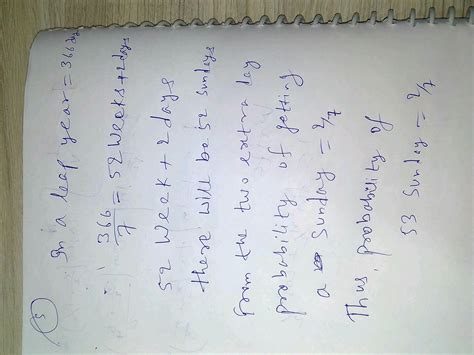 5
In a leap year = 366 days
366/7 = 52 weeks + 2 days
52 Week + 2 days
there will be 52 sundays
from the two extra day
probability of getting
a Sunday = 2/7
Thus, probability of
53 Sunday = 2/7